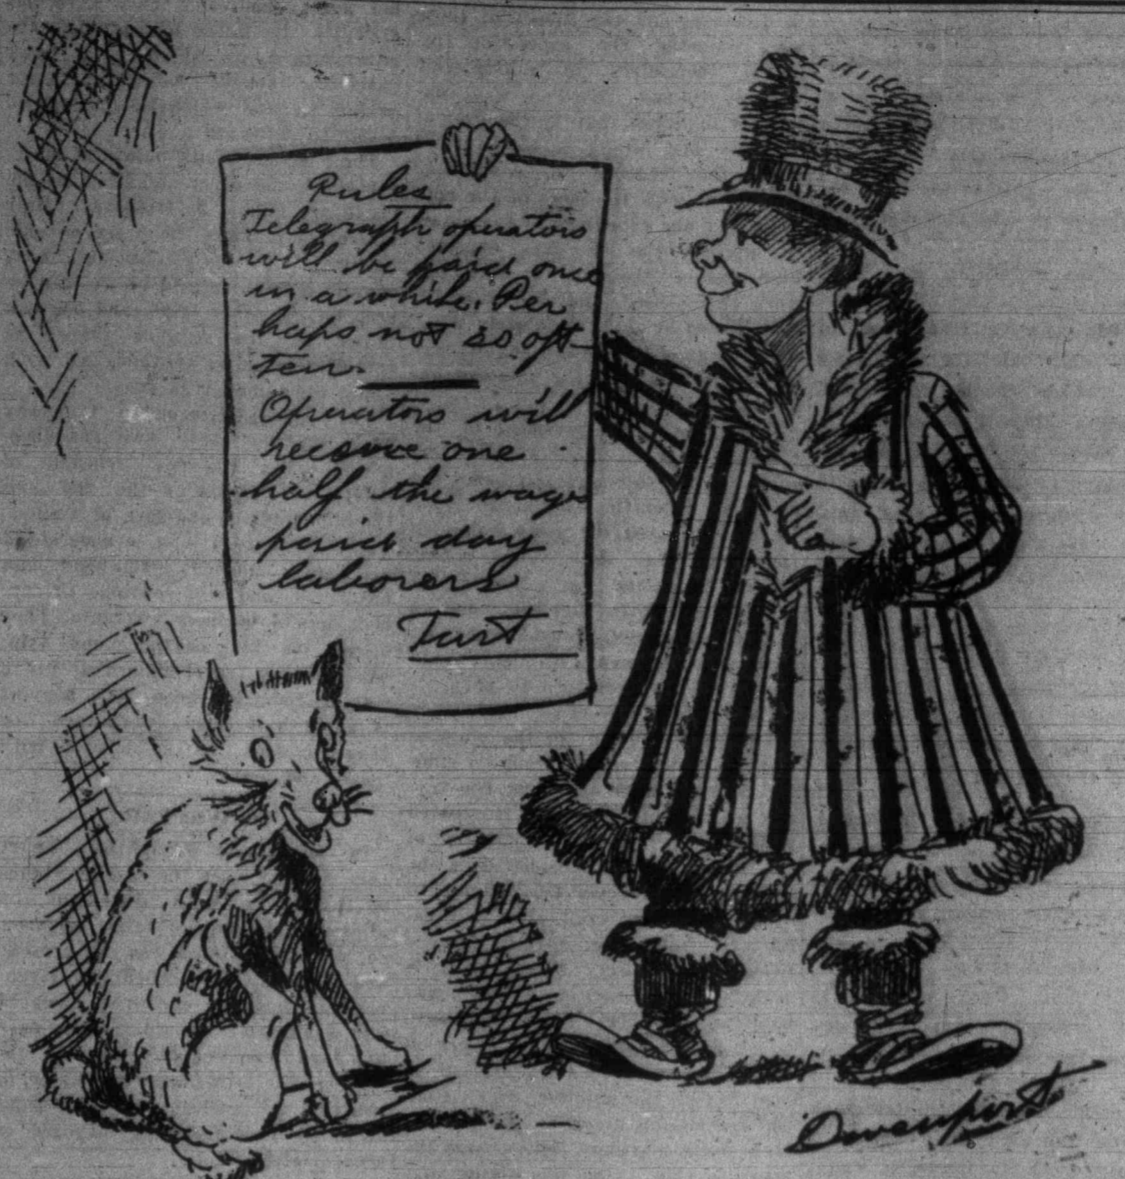 Rules
Telegraph operators
will be paid once
in a while. Per
haps not so oft-
ten.
Operators will
receive one
half the wages
paid day
laborers
Tart
Davenport